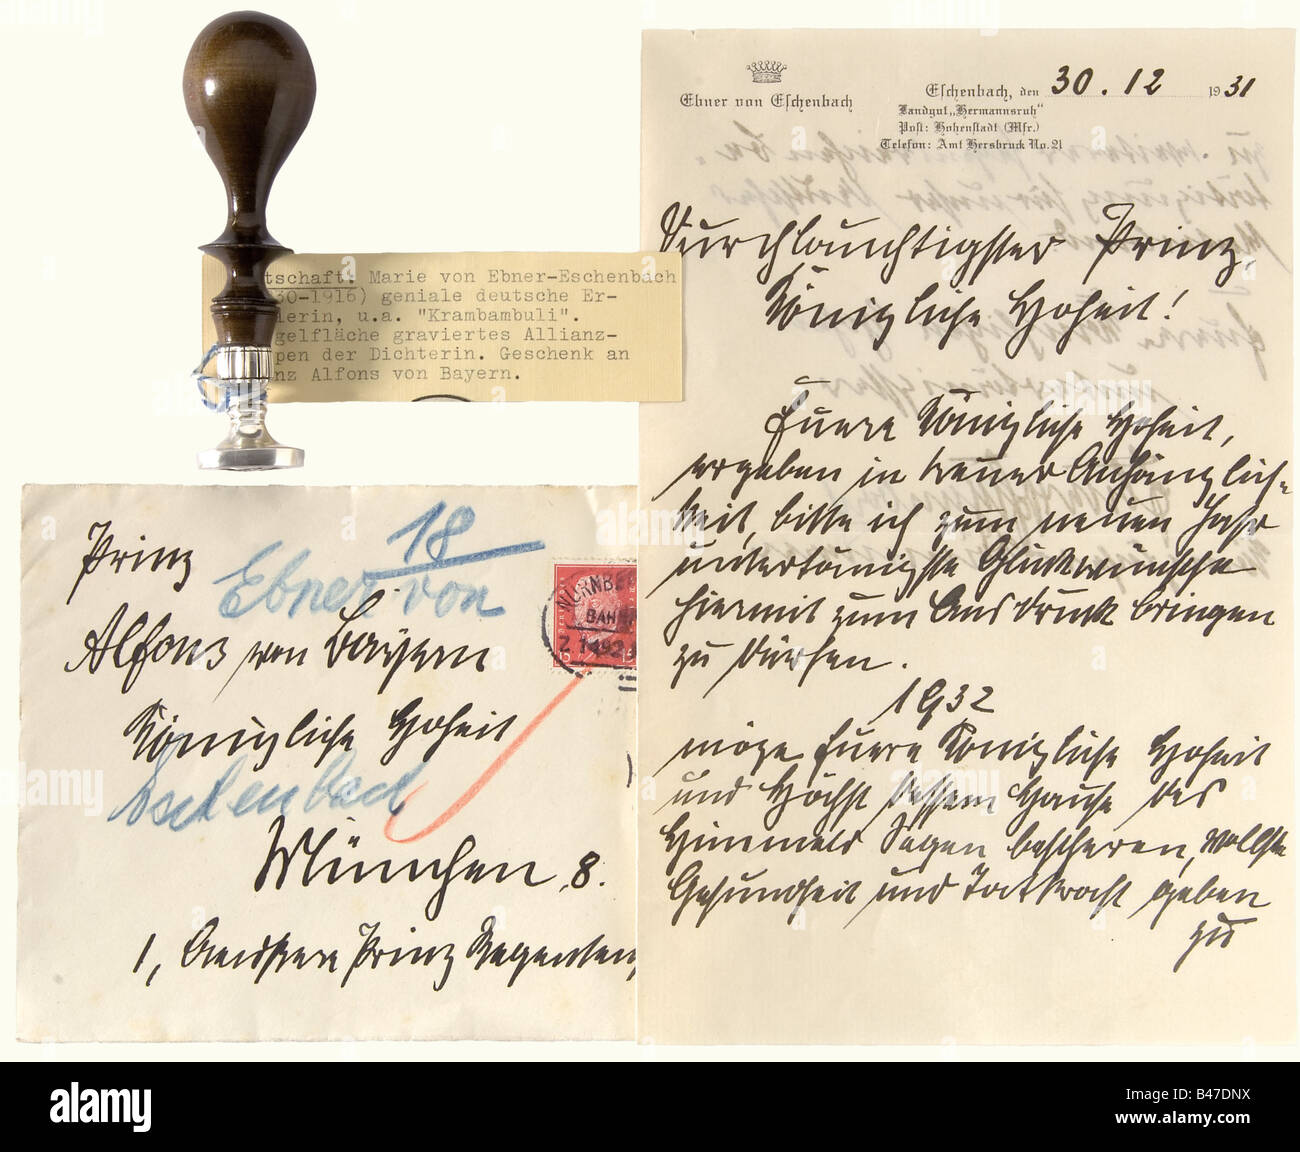 tschaft: Marie von Ebner-Eschenbach
30-1916) geniale deutsche Er-
lerin, u.a. "Krambambuli".
gelfläche graviertes Allianz-
pen der Dichterin. Geschenk an
nz Alfons von Bayern.
Ebner von Eschenbach
Eschenbach, den 30. 12 1931
Landgut „Hermannsruh“
Post: Hohenstadt (Mfr.)
Telefon: Amt Hersbruck No. 21
Durchlauchtigster Prinz,
Königliche Hoheit!
Euere Königliche Hoheit,
ergeben in treuer Anhänglich-
keit, bitte ich zum neuen Jahr
untertänigste Glückwünsche
hiermit zum Ausdruck bringen
zu dürfen.
1932
möge Euere Königliche Hoheit
und Höchst dessen Hause des
Himmels Segen bescheren, wolle
Gesundheit und Tatkraft geben
zu
18
Prinz
Ebner von
Alfons von Bayern
Königliche Hoheit
Eschenbach
München, 8.
1, Aeussere Prinz Regenten
NÜRNBE
BAHN
alamy
Image ID: B47DNX
www.alamy.com